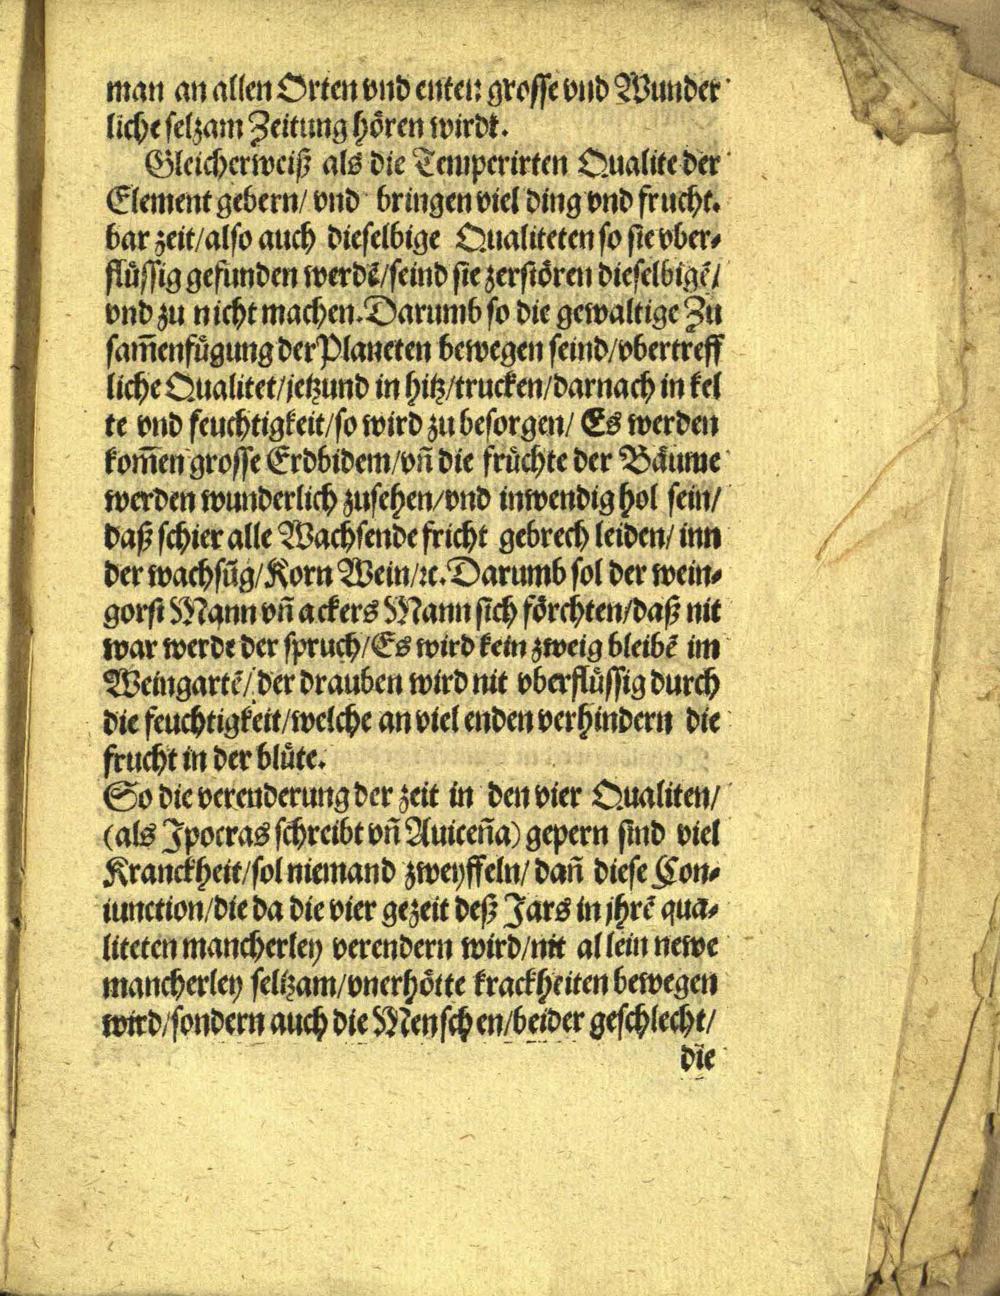 man an allen Orten vnd enten grosse vnd Wunder
liche selzam Zeitung hören wirdt.
Gleicherweiß als die Temperirten Qualite der
Element gebern/ vnd bringen viel ding vnd frucht.
bar zeit/also auch dieselbige Qualiteten so sie vber-
flüssig gefunden werdẽ/seind sie zerstören dieselbigẽ/
vnd zu nicht machen. Darumb so die gewaltige Zu
sam̃enfügung der Planeten bewegen seind/vbertreff
liche Qualitet/jetzund in hitz/trucken/darnach in kel
te vnd feuchtigkeit/so wird zu besorgen/ Es werden
kom̃en grosse Erdbidem/vñ die früchte der Bäume
werden wunderlich zusehen/vnd inwendig hol sein/
daß schier alle Wachsende fricht gebrech leiden/ inn
der wachsũg/Korn Wein/ꝛc. Darumb sol der wein-
gorst Mann vñ ackers Mann sich förchten/daß nit
war werde der spruch/Es wird kein zweig bleibẽ im
Weingartẽ/ der drauben wird nit vberflüssig durch
die feuchtigkeit/welche an viel enden verhindern die
frucht in der blüte.
So die verenderung der zeit in den vier Qualiten/
(als Ipocras schreibt vñ Auiceña) gepern sind viel
Kranckheit/sol niemand zweyffeln/ dañ diese Con-
iunction/die da die vier gezeit deß Jars in jhrẽ qua-
liteten mancherley verendern wird/nit allein newe
mancherley seltzam/vnerhötte krackheiten bewegen
wird/sondern auch die Menschen/beider geschlecht/
die